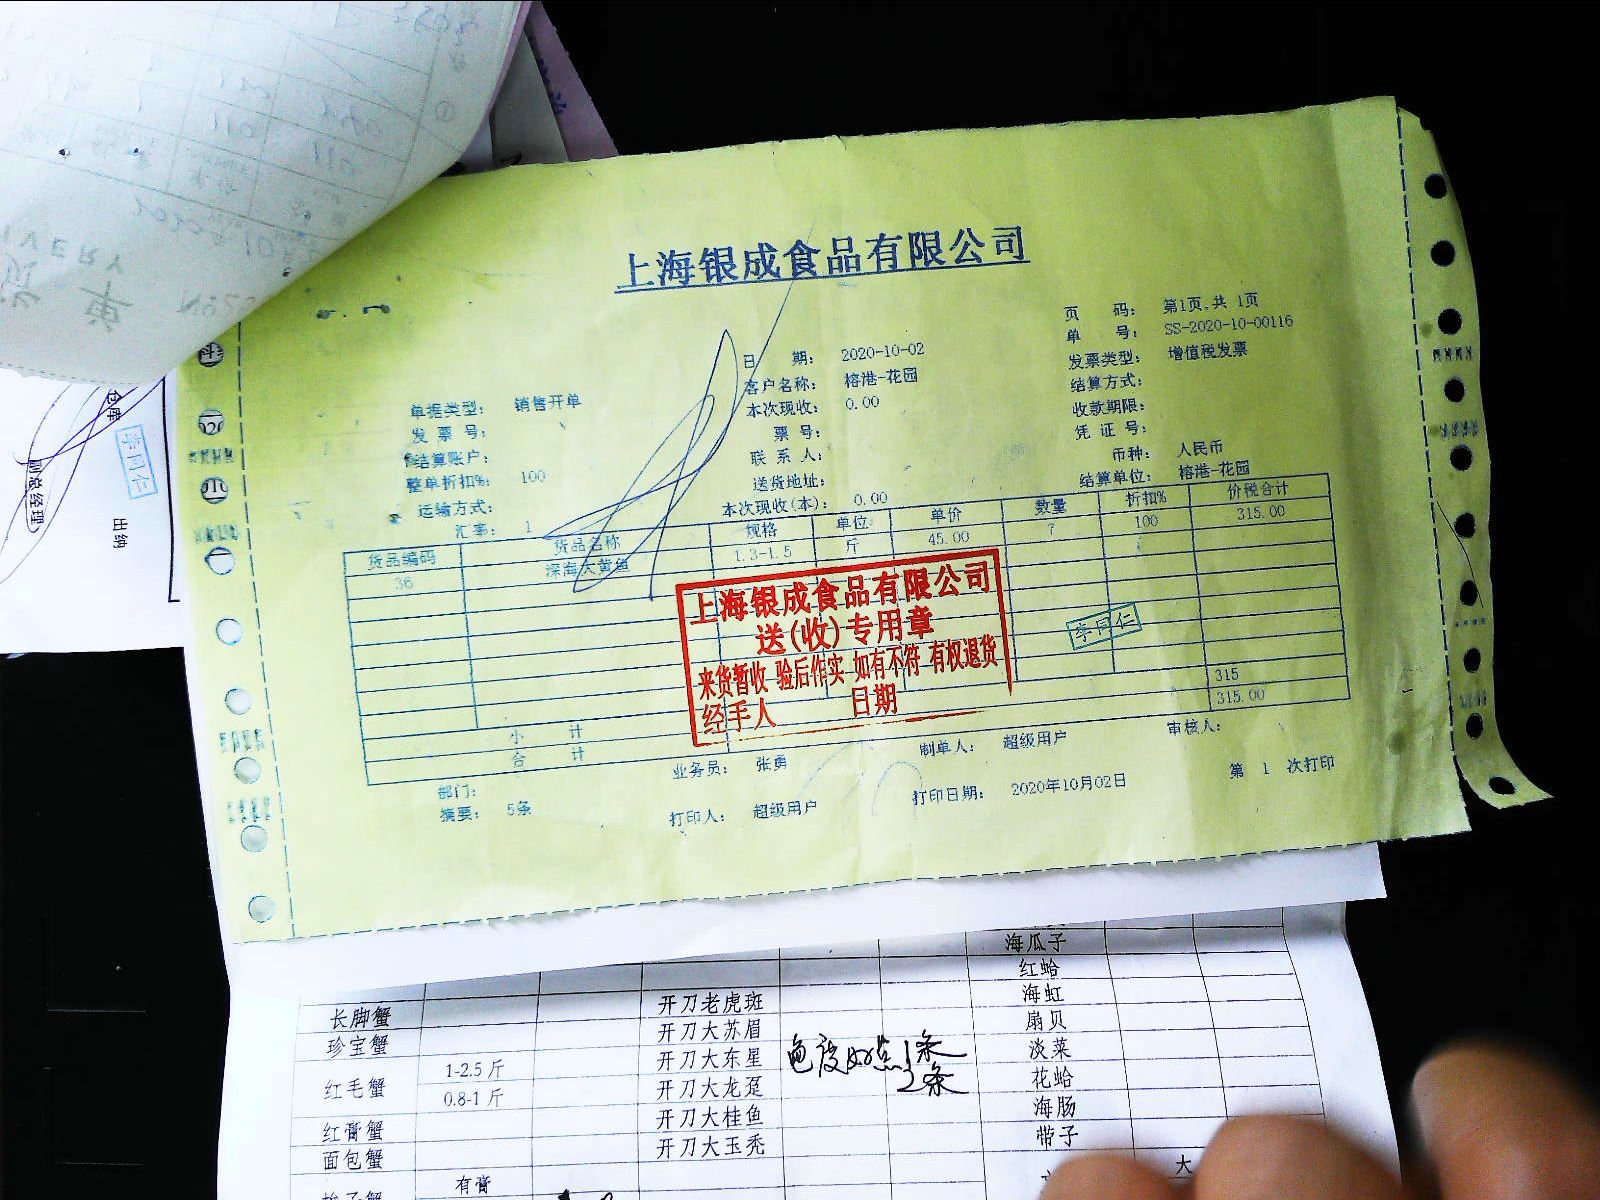 上海银成食品有限公司
页 码： 第1页,共 1页
单 号： SS-2020-10-00116
日 期： 2020-10-02
发票类型： 增值税发票
单据类型： 销售开单
客户名称： 榕港-花园
结算方式：
发 票 号：
本次现收： 0.00
收款期限：
结算账户：
票 号：
凭 证 号：
整单折扣%： 100
联 系 人：
币种： 人民币
运输方式：
送货地址：
结算单位： 榕港-花园
汇率： 1
本次现收(本)： 0.00
货品编码 货品名称 规格 单位 单价 数量 折扣% 价税合计
36 深海大黄鱼 1.3-1.5 斤 45.00 7 100 315.00
上海银成食品有限公司
送(收)专用章
来货暂收 验后作实 如有不符 有权退货
经手人 日期
李同仁
小 计 315
合 计 315.00
部门：
业务员： 张勇
制单人： 超级用户
审核人：
摘要： 5条
打印人： 超级用户
打印日期： 2020年10月02日
第 1 次打印
仓库
李同仁
副总经理
出纳
海瓜子
红蛤
长脚蟹 开刀老虎斑 海虹
珍宝蟹 开刀大苏眉 扇贝
红毛蟹 1-2.5 斤 开刀大东星 色度好点1条 淡菜
0.8-1 斤 开刀大龙趸 2条 花蛤
红膏蟹 开刀大桂鱼 海肠
面包蟹 开刀大玉秃 带子
有膏
大